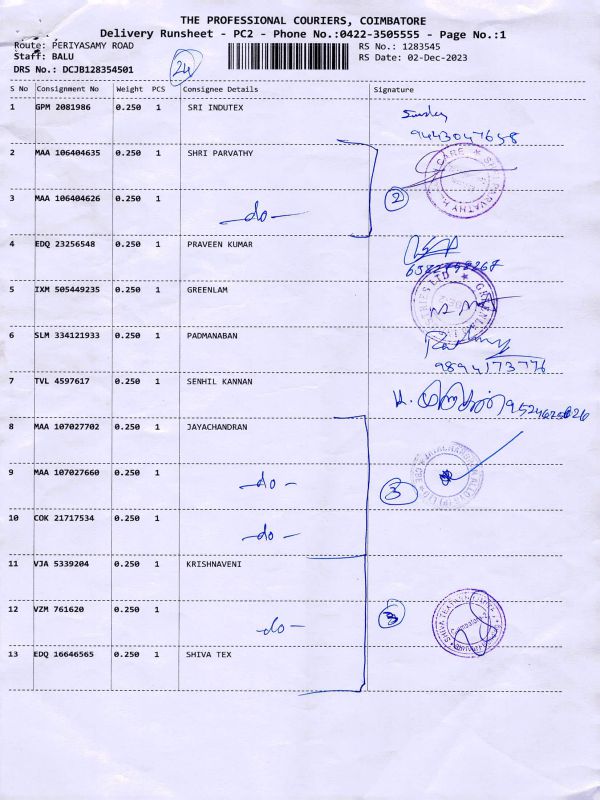 THE PROFESSIONAL COURIERS, COIMBATORE
Delivery Runsheet - PC2 - Phone No.:0422-3505555 - Page No.:1
Route: PERIYASAMY ROAD RS No.: 1283545
Staff: BALU RS Date: 02-Dec-2023
DRS No.: DCJB128354501 24
S No Consignment No Weight PCS Consignee Details Signature
1 GPM 2081986 0.250 1 SRI INDUTEX
9443047658
2 MAA 106404635 0.250 1 SHRI PARVATHY
CARE ★ SHRI PARVATHY
3 MAA 106404626 0.250 1 -do- 2
4 EDQ 23256548 0.250 1 PRAVEEN KUMAR
5 IXM 505449235 0.250 1 GREENLAM
LTD ★ GREENLAM
6 SLM 334121933 0.250 1 PADMANABAN
9894173776
7 TVL 4597617 0.250 1 SENHIL KANNAN
8 MAA 107027702 0.250 1 JAYACHANDRAN
9 MAA 107027660 0.250 1 -do- 3
10 COK 21717534 0.250 1 -do-
11 VJA 5339204 0.250 1 KRISHNAVENI
12 VZM 761620 0.250 1 -do- 3
SHIVA
13 EDQ 16646565 0.250 1 SHIVA TEX